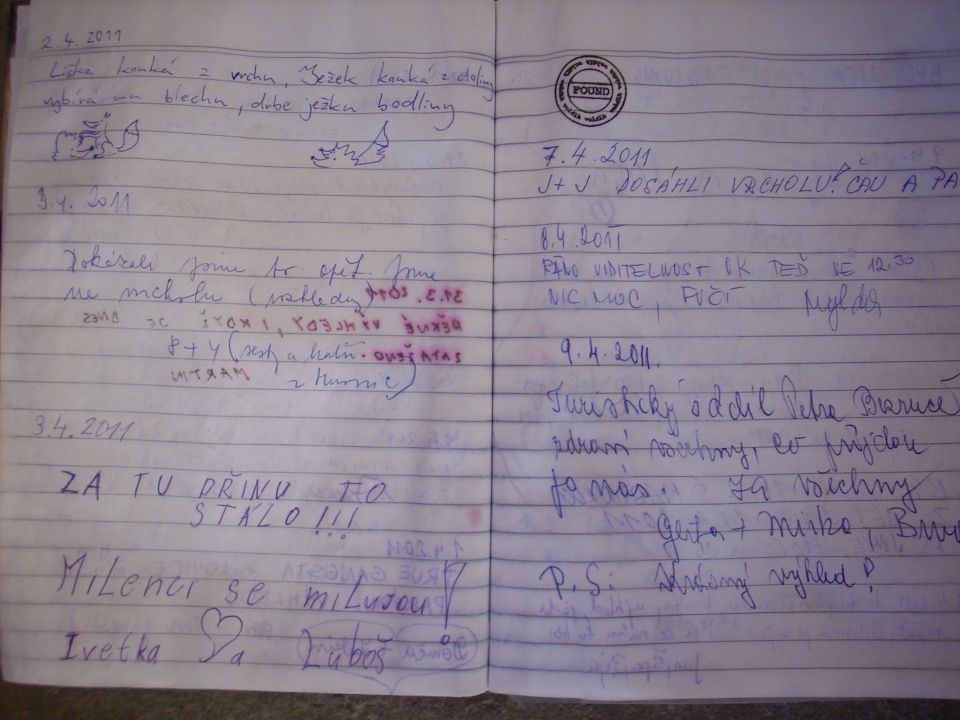 2.4.2011
Liška kouká z vrchu, Ježek kouká z doliny
vybírá mu blechu, drbe ježku bodliny
3.4.2011
Dokázali jsme to opět. Jsme
na vrcholu (rozhledny)
31.3.2011
PĚKNÉ VÝHLEDY, I KDYŽ JE DNES
8+4 ( a
ZATAŽENO.
MARTIN
z
3.4.2011
ZA TU DŘINU TO
STÁLO!!!
MiLenci se miLujou!
Ivetka a Luboš
FOUND
7.4.2011
J+J DOSÁHLI VRCHOLU! ČAU A PA
8.4.2011
RÁNO VIDITELNOST OK TEĎ VE 12,30
NIC MOC, FUČÍ
9.4.2011.
Turistický oddíl Petra Bezruče
zdraví všechny, co přijdou
po nás. Za všechny
Gerta + Mirka, Brno
P.S: Krásný výhled!
1.4.2011
TRUE GANGSTA